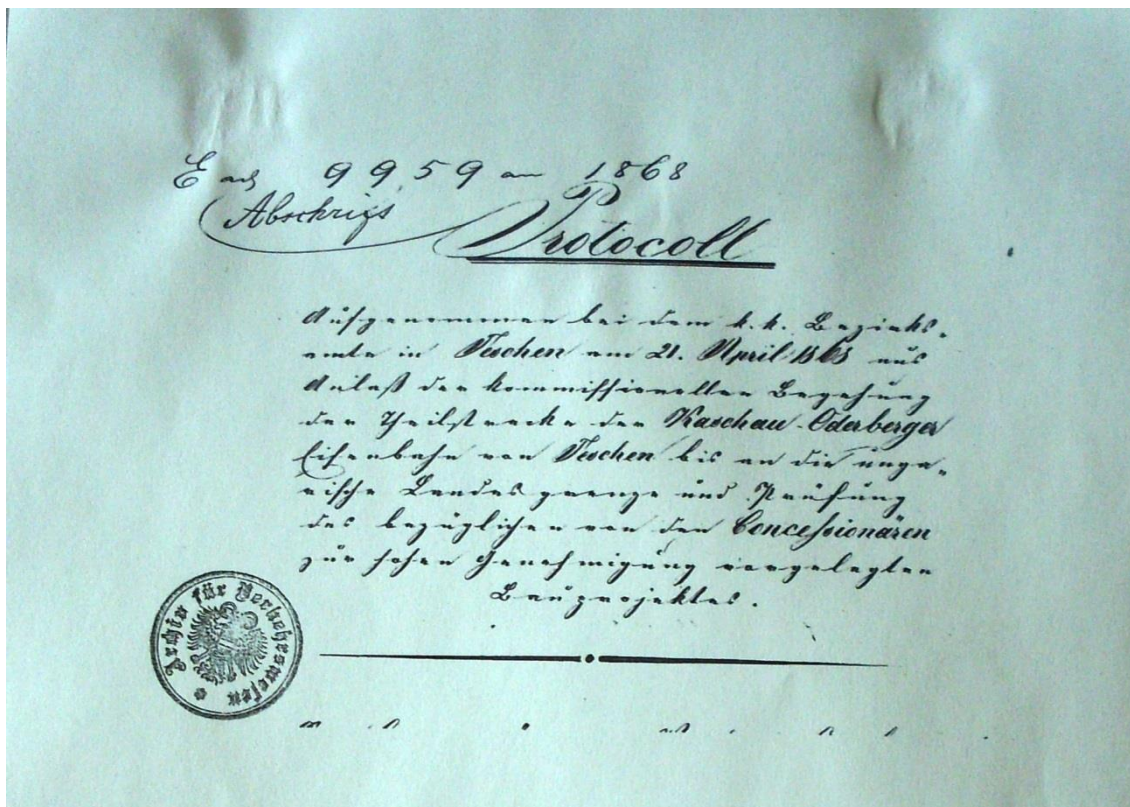 E ad 9959 am 1868
Abschrift
Protocoll
Aufgenommen bei dem k. k. Bezirks-
amte in Teschen am 21. April 1868 aus
Anlaß der kommissionellen Begehung
der Theilstrecke der Kaschau-Oderberger
Eisenbahn von Teschen bis an die unga-
rische Landesgrenze und Prüfung
des bezüglichen von den Concessionären
zur hohen Genehmigung vorgelegten
Bauprojektes.
Archiv für Verkehrswesen